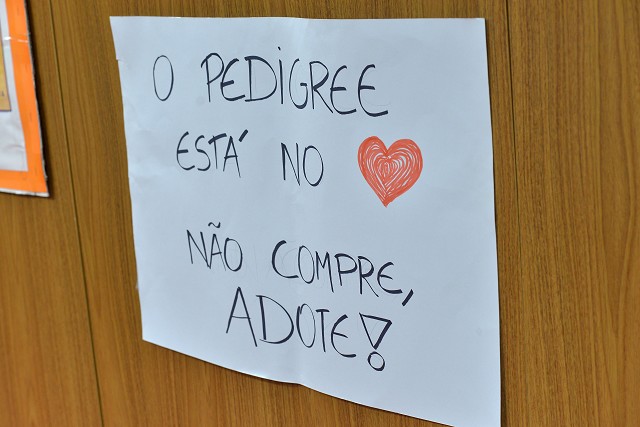 O PEDIGREE
ESTÁ NO
NÃO COMPRE,
ADOTE!